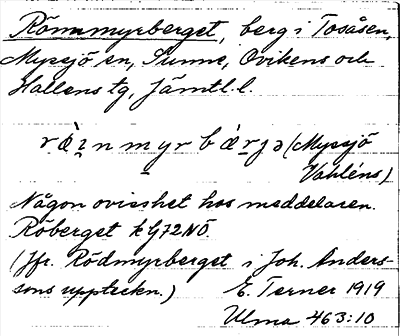 Römmyrberget, berg i Tosåsen,
Myssjö sn, Sunne, Ovikens och
Hallens tg, Jämtl. l.
(Myssjö
Vahléns)
Någon ovisshet hos meddelaren.
Röberget k G72NÖ
(Jfr. Rödmyrberget i Joh. Anders-
sons uppteckn.) E. Terner 1919
Ulma 463:10